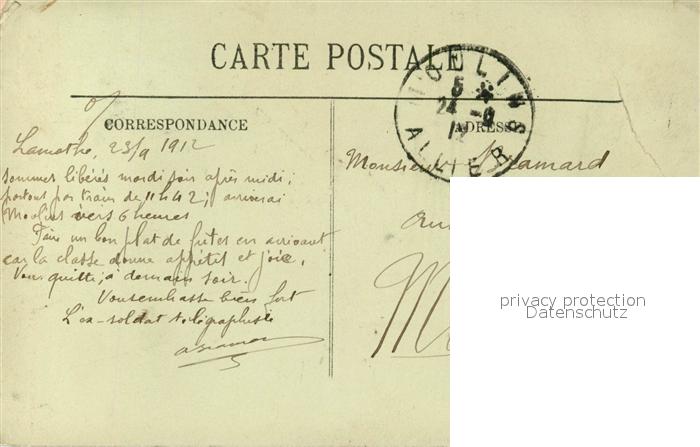 CARTE POSTALE
CORRESPONDANCE
ADRESSE
MOULINS
5 *
24 -9
12
ALLIER
Lamothe, 23/9 1912
sommes libérés mardi soir après midi;
partons par train de 11 h 42; arriverai
Moulins vers 6 heures
Faire un bon plat de frites en arrivant
car la classe donne appétit et joie.
Vous quitte, à demain soir.
Vous embrasse bien fort
L'ex-soldat télégraphiste
Monsieur
M
privacy protection
Datenschutz